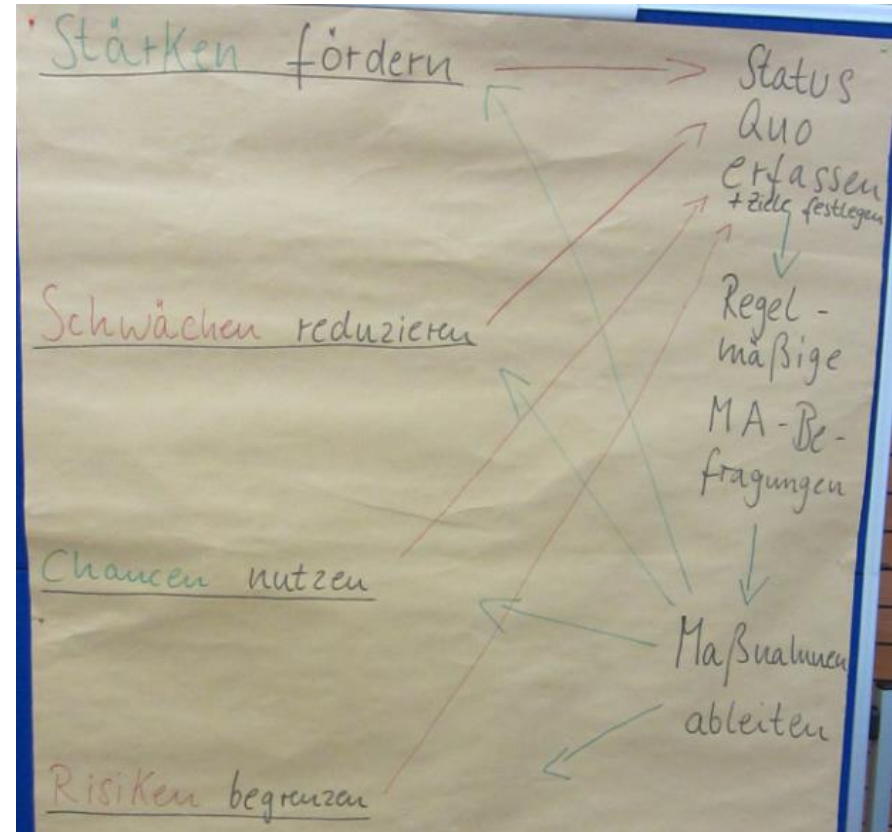 Stärken fördern
Schwächen reduzieren
Chancen nutzen
Risiken begrenzen
Status
Quo
erfassen
+ Ziele festlegen
Regel-
mäßige
MA-Be-
fragungen
Maßnahmen
ableiten